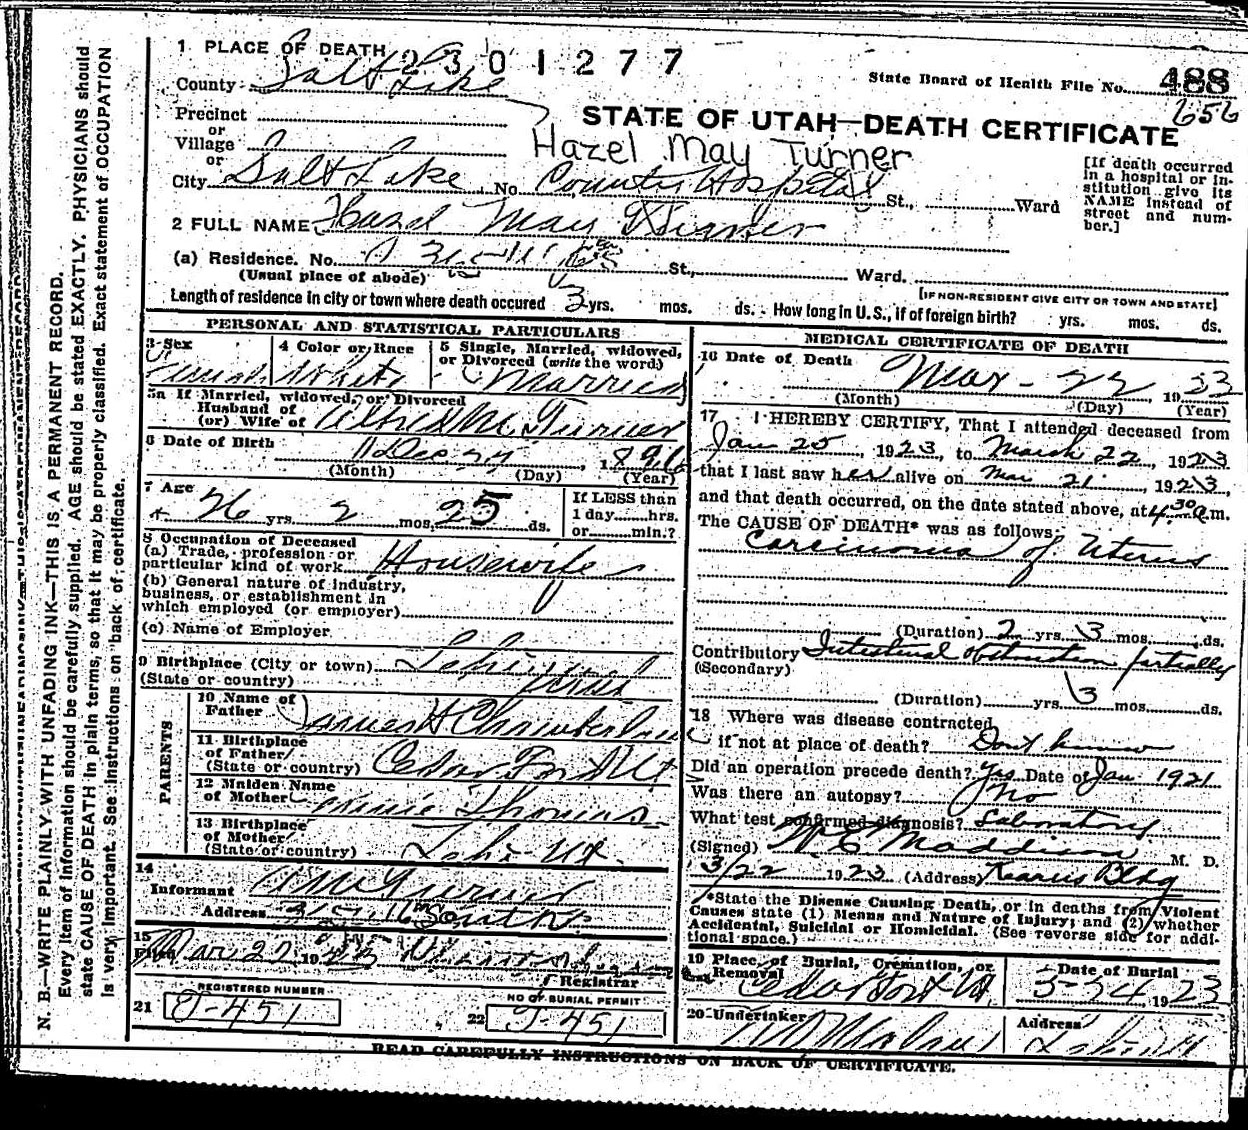 1 PLACE OF DEATH 2301277
County Salt Lake
State Board of Health File No. 488
656
Precinct
or
Village
or
STATE OF UTAH—DEATH CERTIFICATE
Hazel May Turner
City Salt Lake No. County Hospital St., Ward
[If death occurred in a hospital or institution give its NAME instead of street and number.]
2 FULL NAME Hazel May Turner
(a) Residence. No. St., Ward.
(Usual place of abode)
[IF NON-RESIDENT GIVE CITY OR TOWN AND STATE]
Length of residence in city or town where death occured 3 yrs. mos. ds. How long in U. S., if of foreign birth? yrs. mos. ds.
PERSONAL AND STATISTICAL PARTICULARS
3 Sex 4 Color or Race 5 Single, Married, widowed, or Divorced (write the word)
Female White Married
5a If Married, widowed, or Divorced
Husband of
(or) Wife of Alfred M. Turner
6 Date of Birth Dec 27, 1896
(Month) (Day) (Year)
7 Age
26 yrs. 2 mos. 25 ds.
If LESS than
1 day hrs.
or min.?
8 Occupation of Deceased
(a) Trade, profession or
particular kind of work Housewife
(b) General nature of industry,
business, or establishment in
which employed (or employer)
(c) Name of Employer
9 Birthplace (City or town) Lehi
(State or country) Utah
PARENTS
10 Name of Father James H Chamberlin
11 Birthplace of Father (State or country) Cedar Fort Ut
12 Maiden Name of Mother Thomas
13 Birthplace of Mother (State or country) Lehi Ut.
14
Informant A M Turner
Address
15
Filed Mar 27, 1923
Registrar
REGISTERED NUMBER
21
NO OF BURIAL PERMIT
22
MEDICAL CERTIFICATE OF DEATH
16 Date of Death Mar - 22 1923
(Month) (Day) (Year)
17 I HEREBY CERTIFY, That I attended deceased from
Jan 25, 1923, to March 22, 1923
that I last saw her alive on Mar 21, 1923,
and that death occurred, on the date stated above, at 4 30 a.m.
The CAUSE OF DEATH* was as follows:
Carcinoma of Uterus
(Duration) 2 yrs. 3 mos. ds.
Contributory Intestinal obstruction partially
(Secondary)
(Duration) yrs. 3 mos. ds.
18 Where was disease contracted
if not at place of death? Dont know
Did an operation precede death? Yes Date of Jan 1921
Was there an autopsy? No
What test confirmed diagnosis? Laboratory
(Signed) W E Maddison M. D.
3/22 1923 (Address) Kearns Bldg
*State the Disease Causing Death, or in deaths from Violent
Causes state (1) Means and Nature of Injury; and (2) whether
Accidental, Suicidal or Homicidal. (See reverse side for addi-
tional space.)
19 Place of Burial, Cremation, or Removal Date of Burial
Cedar Fort Ut 3-24 1923
20 Undertaker Address
Lehi Ut
READ CAREFULLY INSTRUCTIONS ON BACK OF CERTIFICATE.
N. B.—WRITE PLAINLY WITH UNFADING INK—THIS IS A PERMANENT RECORD.
Every item of information should be carefully supplied. AGE should be stated EXACTLY. PHYSICIANS should
state CAUSE OF DEATH in plain terms, so that it may be properly classified. Exact statement of OCCUPATION
is very important. See instructions on back of certificate.